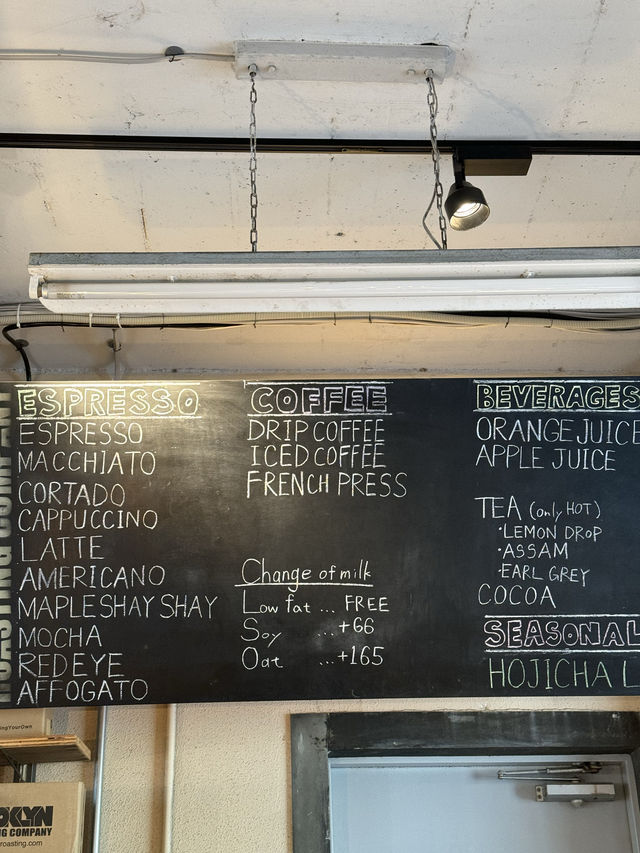 ESPRESSO
ESPRESSO
MACCHIATO
CORTADO
CAPPUCCINO
LATTE
AMERICANO
MAPLE SHAY SHAY
MOCHA
RED EYE
AFFOGATO
COFFEE
DRIP COFFEE
ICED COFFEE
FRENCH PRESS
Change of milk
Low fat ... FREE
Soy ...+66
Oat ...+165
BEVERAGES
ORANGE JUICE
APPLE JUICE
TEA (only HOT)
・LEMON DROP
・ASSAM
・EARL GREY
COCOA
SEASONAL
HOJICHA L
ingYourOwn
OKLYN
NG COMPANY
roasting.com